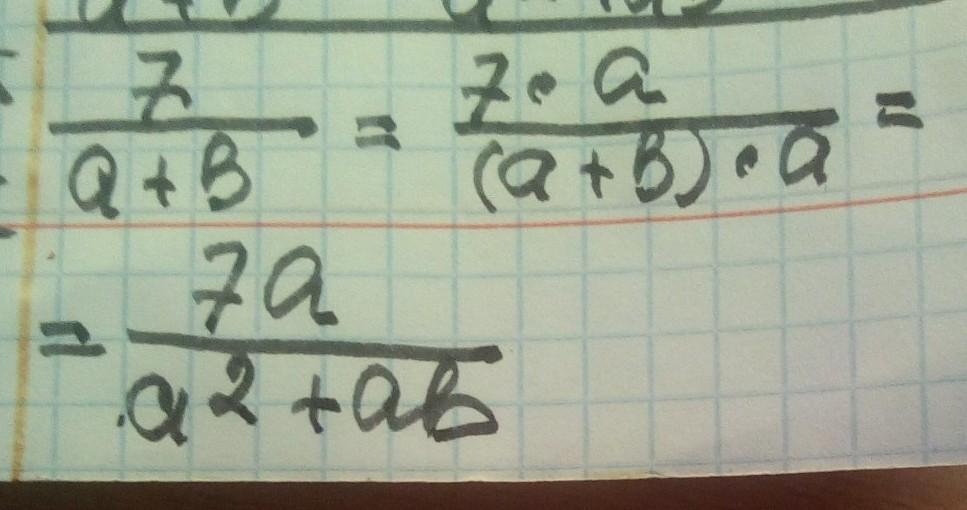 7/(a+b) = (7·a)/((a+b)·a) =
= 7a/(a²+ab)